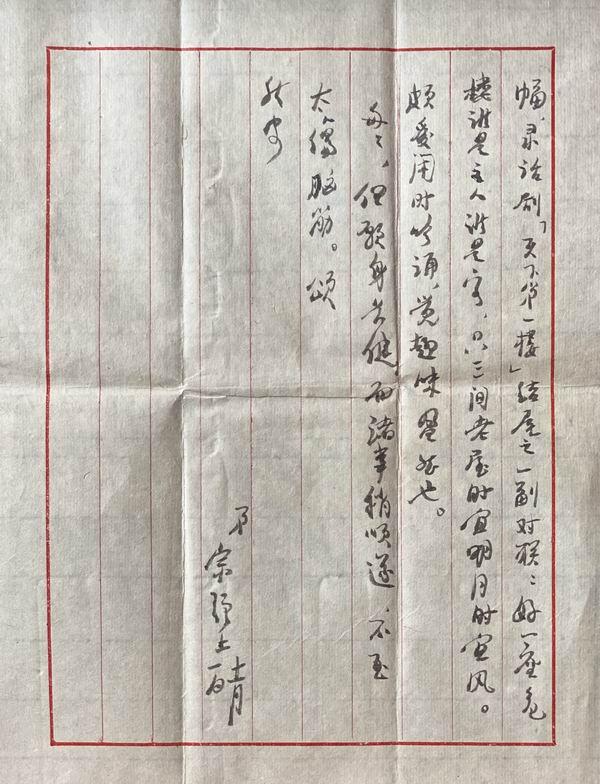 幅，录话剧「天下第一楼」结尾之一副对联：好一座危
楼谁是主人谁是客，只三间老屋时宜明月时宜风。
颇爱闲时吟诵，觉趣味盎然也。
匆匆，但愿身安健，而诸事稍顺遂，不至
太伤脑筋。颂
秋安
弟
宗强上
十一月
一日